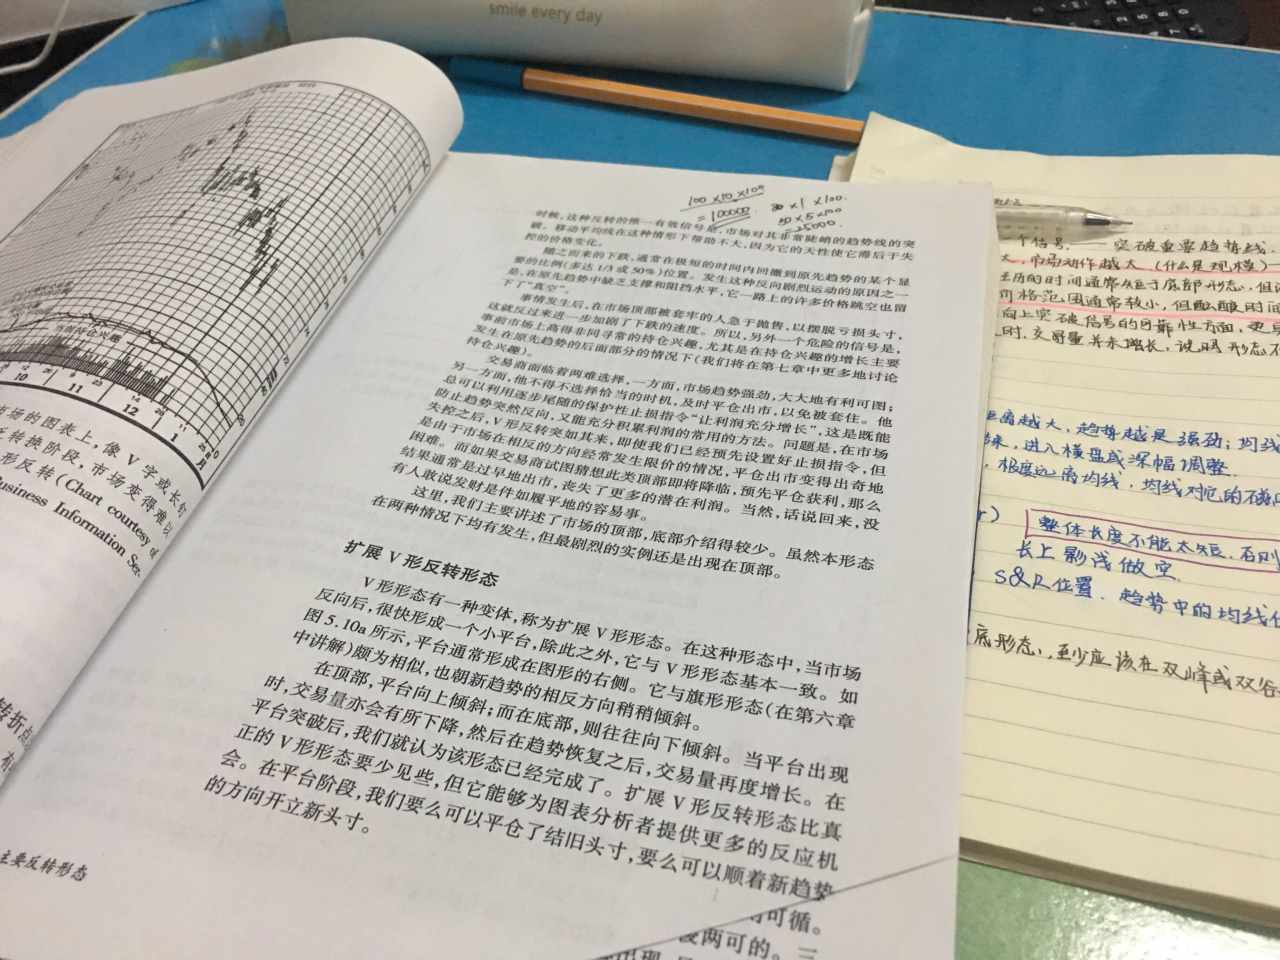 smile every day
100 × 10 × 100
= 100000
30 × 1 × 100
50 × 5 × 100
= 25000.
时候，这种反转的惟一有效信号是，市场对其非常陡峭的趋势线的突
破。移动平均线在这种情形下帮助不大，因为它的天性使它滞后于失
控的价格变化。
随之而来的下跌，通常在极短的时间内回撤到原先趋势的某个显
要的比例(多达1/3或50%)位置。发生这种反向剧烈运动的原因之一
是，在原先趋势中缺乏支撑和阻挡水平，它一路上的许多价格跳空也留
下了“真空”。
事情发生后，在市场顶部被套牢的人急于抛售，以摆脱亏损头寸，
这就反过来进一步加剧了下跌的速度。所以，另外一个危险的信号是，
事前市场上高得非同寻常的持仓兴趣，尤其是在持仓兴趣的增长主要
发生在原先趋势的后面部分的情况下(我们将在第七章中更多地讨论
持仓兴趣)。
交易商面临着两难选择，一方面，市场趋势强劲，大大地有利可图；
另一方面，他不得不选择恰当的时机，及时平仓出市，以免被套住。他
总可以利用逐步尾随的保护性止损指令“让利润充分增长”，这是既能
防止趋势突然反向，又能充分积累利润的常用的方法。问题是，在市场
失控之后，V形反转突如其来，即使我们已经预先设置好止损指令，但
是由于市场在相反的方向经常发生限价的情况，平仓出市变得出奇地
困难。而如果交易商试图猜想此类顶部即将降临，预先平仓获利，那么
结果通常是过早地出市，丧失了更多的潜在利润。当然，话说回来，没
有人敢说发财是件如履平地的容易事。
这里，我们主要讲述了市场的顶部，底部介绍得较少。虽然本形态
在两种情况下均有发生，但最剧烈的实例还是出现在顶部。
扩展 V 形反转形态
V形形态有一种变体，称为扩展V形形态。在这种形态中，当市场
反向后，很快形成一个小平台，除此之外，它与V形形态基本一致。如
图5.10a所示，平台通常形成在图形的右侧。它与旗形形态(在第六章
中讲解)颇为相似，也朝新趋势的相反方向稍稍倾斜。
在顶部，平台向上倾斜；而在底部，则往往向下倾斜。当平台出现
时，交易量亦会有所下降，然后在趋势恢复之后，交易量再度增长。在
平台突破后，我们就认为该形态已经完成了。扩展V形反转形态比真
正的V形形态要少见些，但它能够为图表分析者提供更多的反应机
会。在平台阶段，我们要么可以平仓了结旧头寸，要么可以顺着新趋势
的方向开立新头寸。
可循。
两可的。三
当前持仓兴趣
10 11 12 1
市场的图表上，像V字或长钉
反转换阶段，市场变得难以
形反转(Chart courtesy of
Business Information Ser-
转折点
主要反转形态
个信号，——突破重要趋势线.
大，市场动作越大(什么是规模)
经历的时间通常短于底部形态，但
价格范围通常较小，但酝酿时间
向上突破信号的可靠性方面，更
时，交易量并未增长，说明形态不
距离越大，趋势越是强劲；均线
来，进入横盘或深幅调整.
，极度远离均线，均线对它的
整体长度不能太短，否则
长上影线做空.
S&R位置. 趋势中的均线位
底形态，至少应该在双峰或双谷